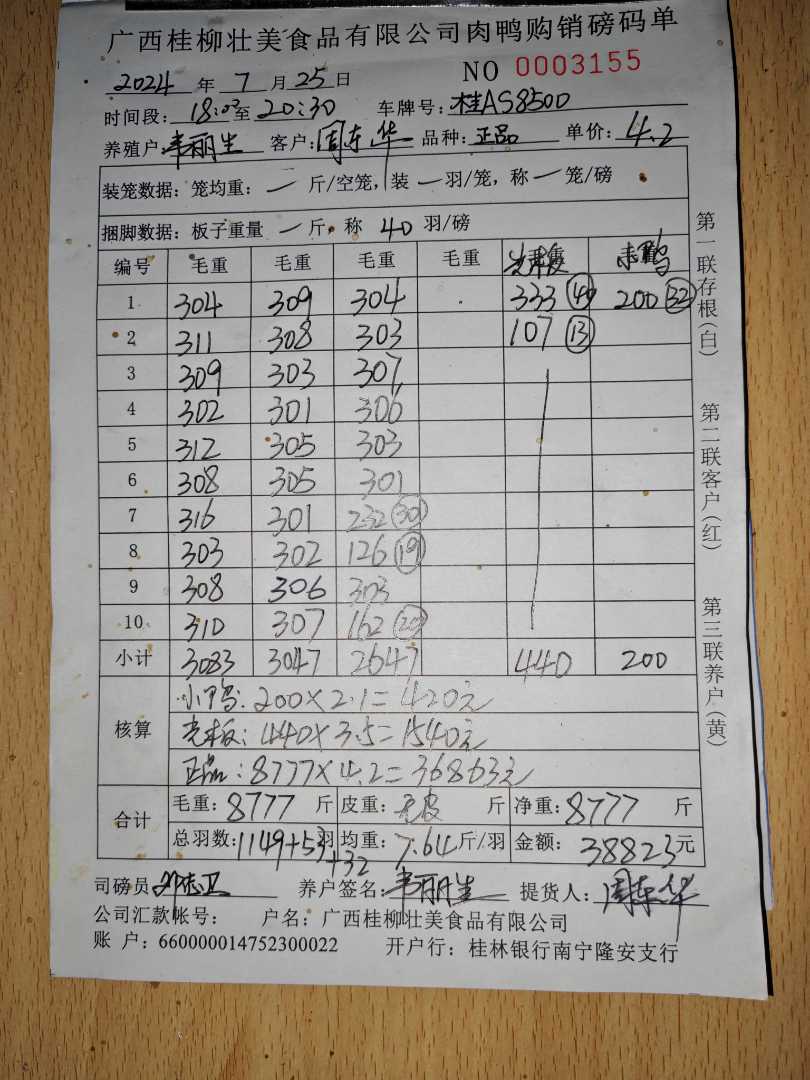 广西桂柳壮美食品有限公司肉鸭购销磅码单
2024 年 7 月 25 日 NO 0003155
时间段: 18:02至20:30 车牌号: 桂AS8500
养殖户: 韦丽生 客户: 周东华 品种: 正品 单价: 4.2
装笼数据: 笼均重: 一 斤/空笼, 装 一 羽/笼, 称 一 笼/磅
捆脚数据: 板子重量 一 斤, 称 40 羽/磅
编号 毛重 毛重 毛重 毛重 光板
1 304 309 304 333 (40) 200 (32)
2 311 308 303 107 (13)
3 309 303 307
4 302 301 306
5 312 305 303
6 308 305 301
7 316 301 232 (30)
8 303 302 126 (19)
9 308 306 303
10 310 307 162 (20)
小计 3083 3047 2647 440 200
核算
小鸭: 200×2.1=420元
光板: 440×3.5=1540元
正品: 8777×4.2=36863元
合计
毛重: 8777 斤 皮重: 毛皮 斤 净重: 8777 斤
总羽数: 1149+53+32 羽 均重: 7.64 斤/羽 金额: 38823元
司磅员 养户签名: 韦丽生 提货人: 周东华
公司汇款帐号: 户名: 广西桂柳壮美食品有限公司
账 户: 660000014752300022 开户行: 桂林银行南宁隆安支行
第一联存根(白) 第二联客户(红) 第三联养户(黄)